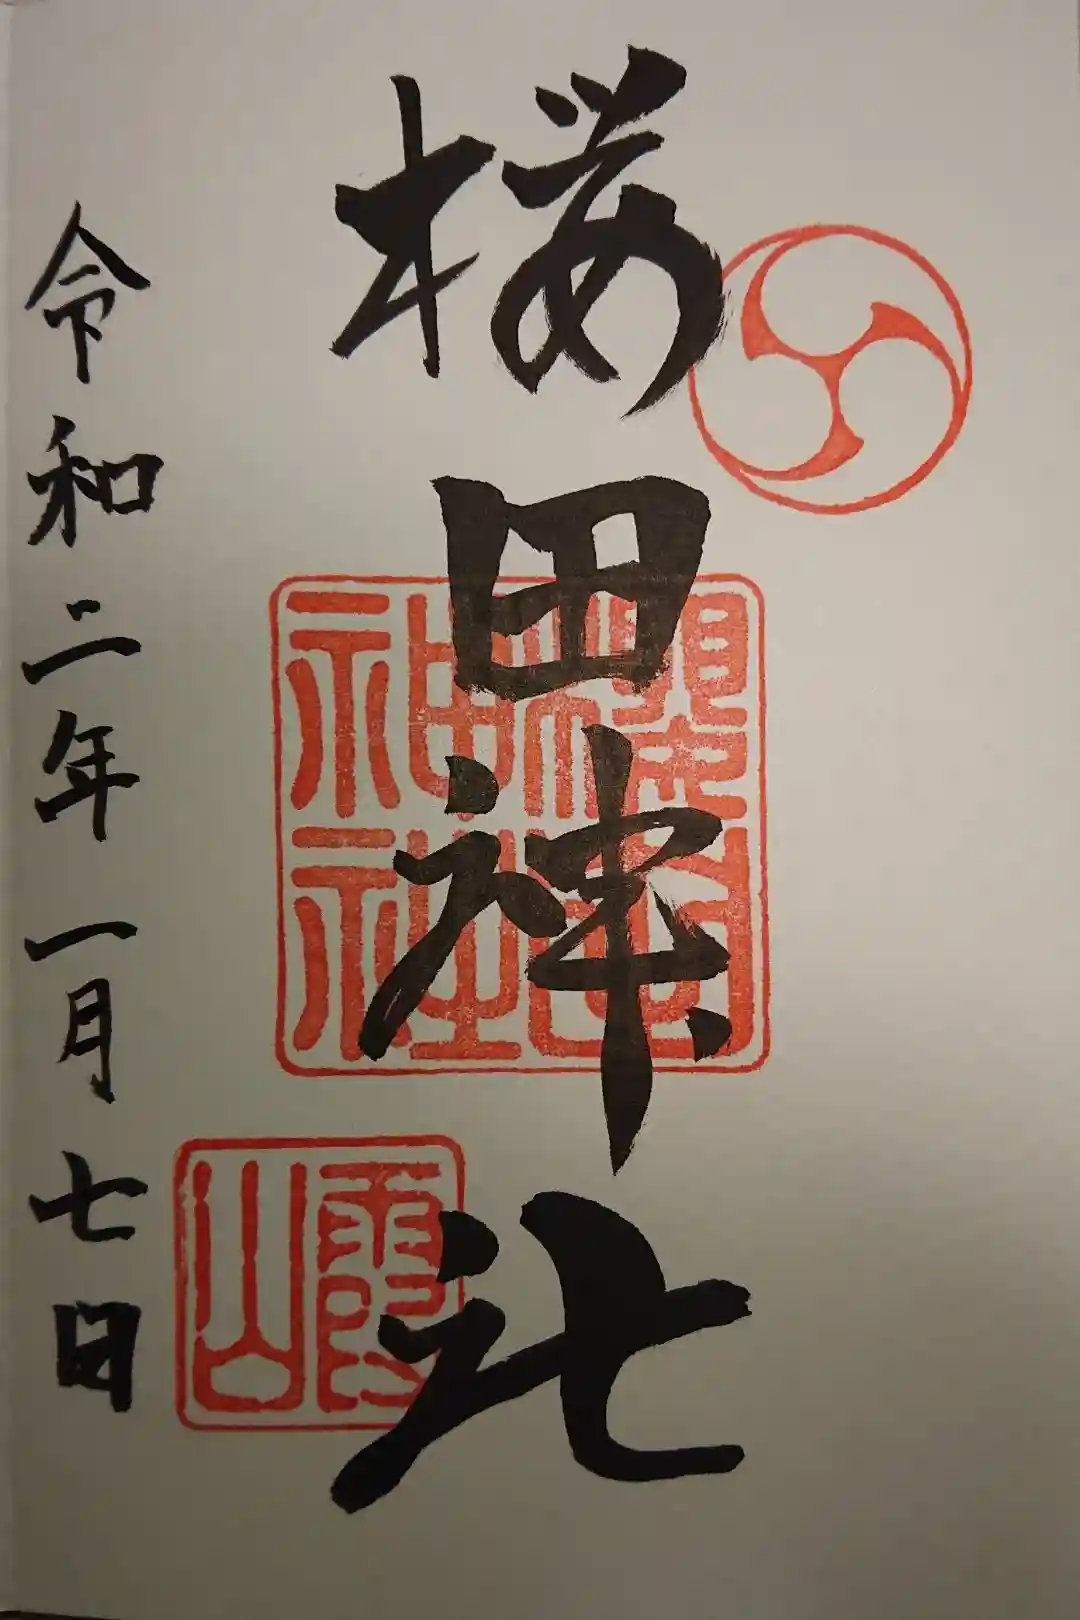 桜田神社
櫻田
神社
霞山
令和二年一月七日